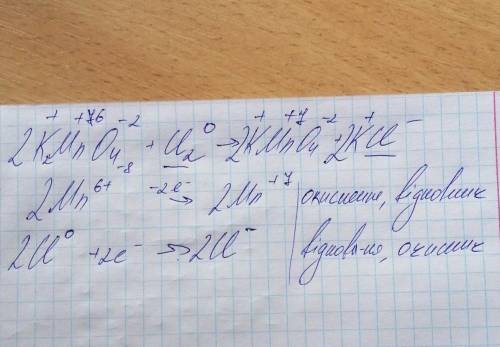 + +76 -2 0 + +7 -2 + -
2K₂MnO₄ + Cl₂ → 2KMnO₄ + 2KCl
-8
2Mn⁶⁺ -2e⁻ → 2Mn⁺⁷ | окиснення, відновник
2Cl⁰ +2e⁻ → 2Cl⁻ | відновл-ня, окисник